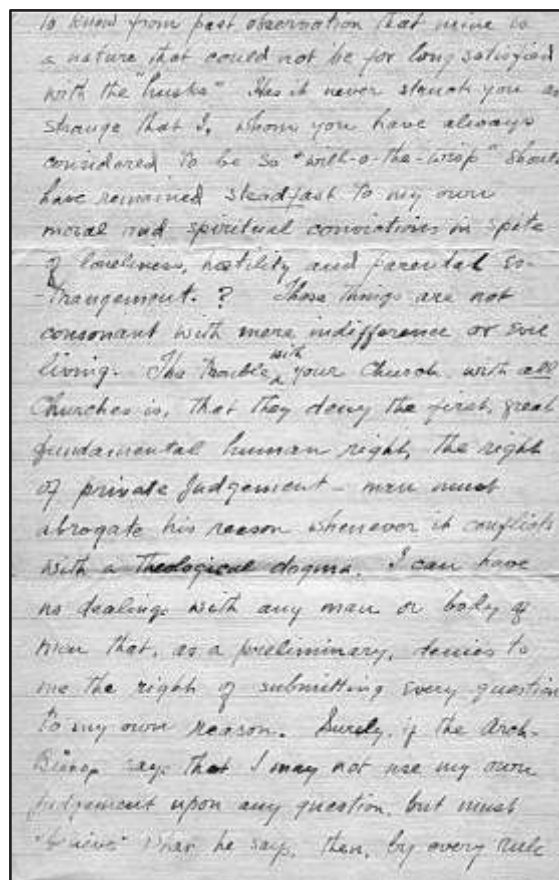 to know from past observation that mine is
a nature that could not be for long satisfied
with the "husks" Has it never struck you as
strange that I, whom you have always
considered to be so "will-o-the-wisp" should
have remained steadfast to my own
moral and spiritual convictions in spite
of loneliness, hostility and parental es-
-trangement. ? Those things are not
consonant with mere indifference or evil
living. The trouble with your Church, with all
Churches is, that they deny the first, great
fundamental human right, the right
of private judgement – man must
abrogate his reason whenever it conflicts
with a theological dogma. I can have
no dealings with any man or body of
men that, as a preliminary, denies to
me the right of submitting every question
to my own reason. Surely, if the Arch-
Bishop says that I may not use my own
judgement upon any question, but must
"believe" what he says, then, by every rule